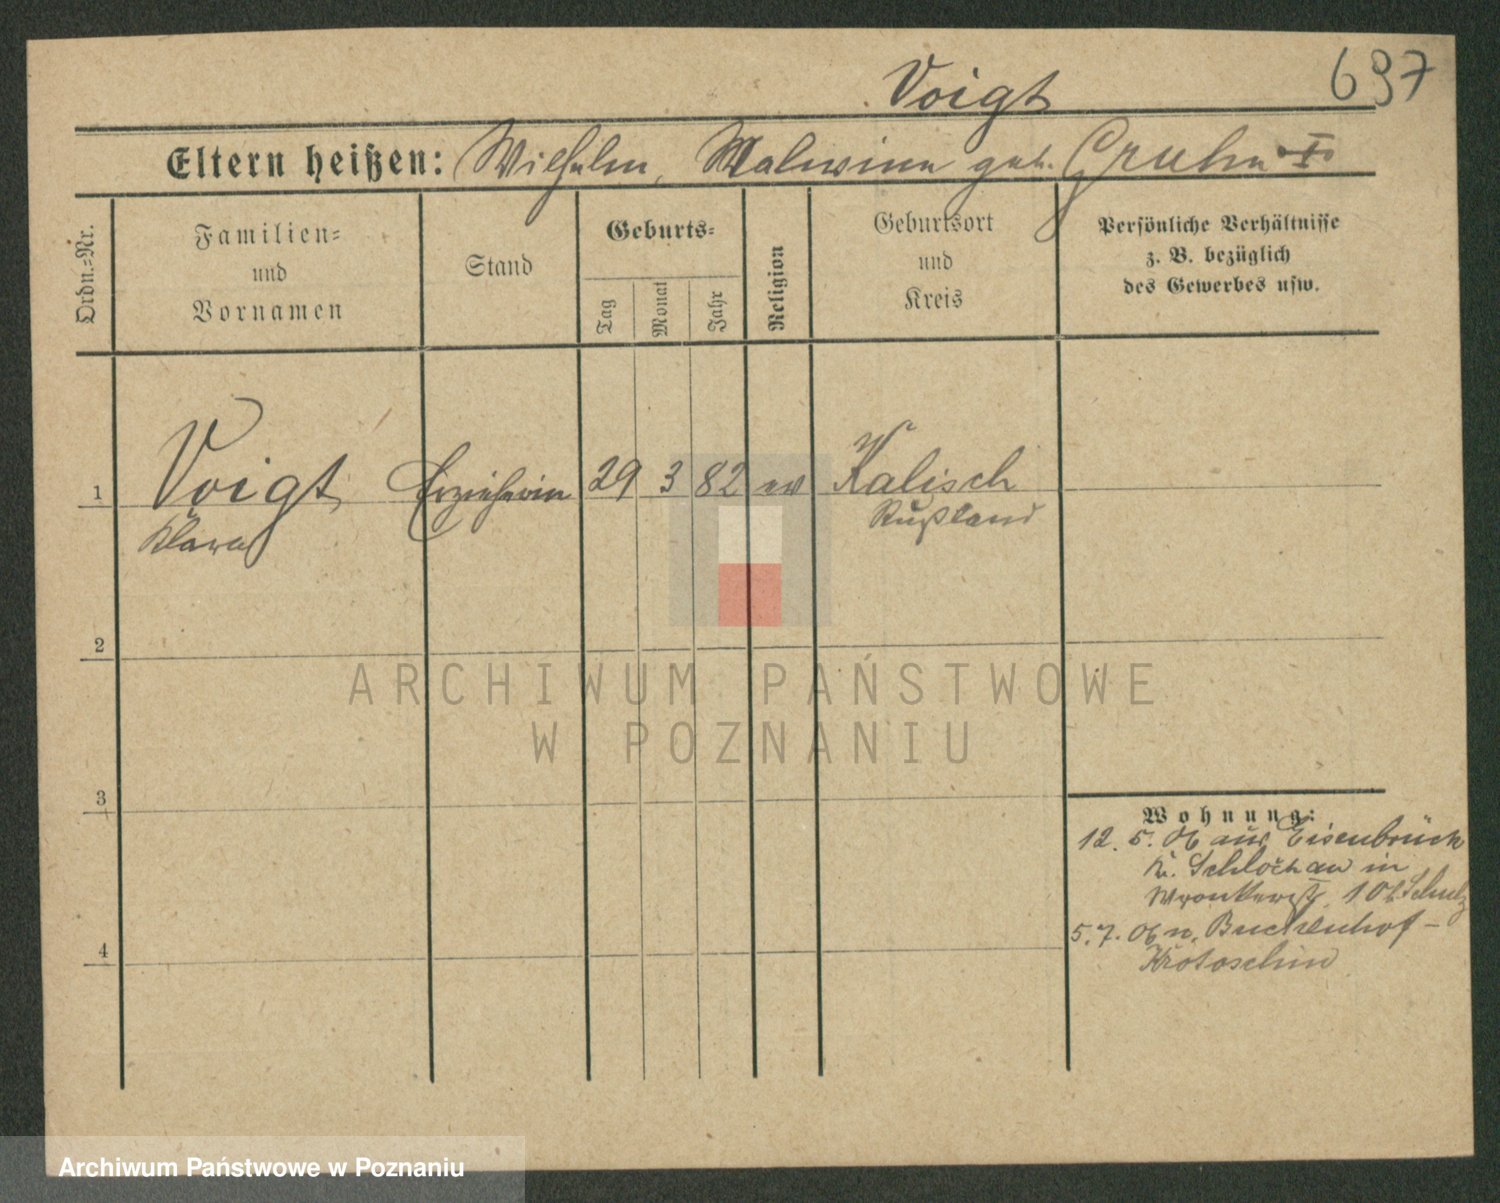 697
Voigt
Eltern heißen: Wilhelm, Malwine geb. Gruhn
Ordn.-Nr.
Familien-
und
Vornamen
Stand
Geburts-
Tag
Monat
Jahr
Religion
Geburtsort
und
Kreis
Persönliche Verhältnisse
z. B. bezüglich
des Gewerbes usw.
1 Voigt Erzieherin 29 3 82 ev Kalisch
Klara Rußland
2
3
4
Wohnung:
12. 5. 06 aus Eisenbrück
Kr. Schlochau in
Wronkerstr. 10 b Schulz
5. 7. 06 n. Buchenhof-
Krotoschin
ARCHIWUM PAŃSTWOWE
W POZNANIU
Archiwum Państwowe w Poznaniu